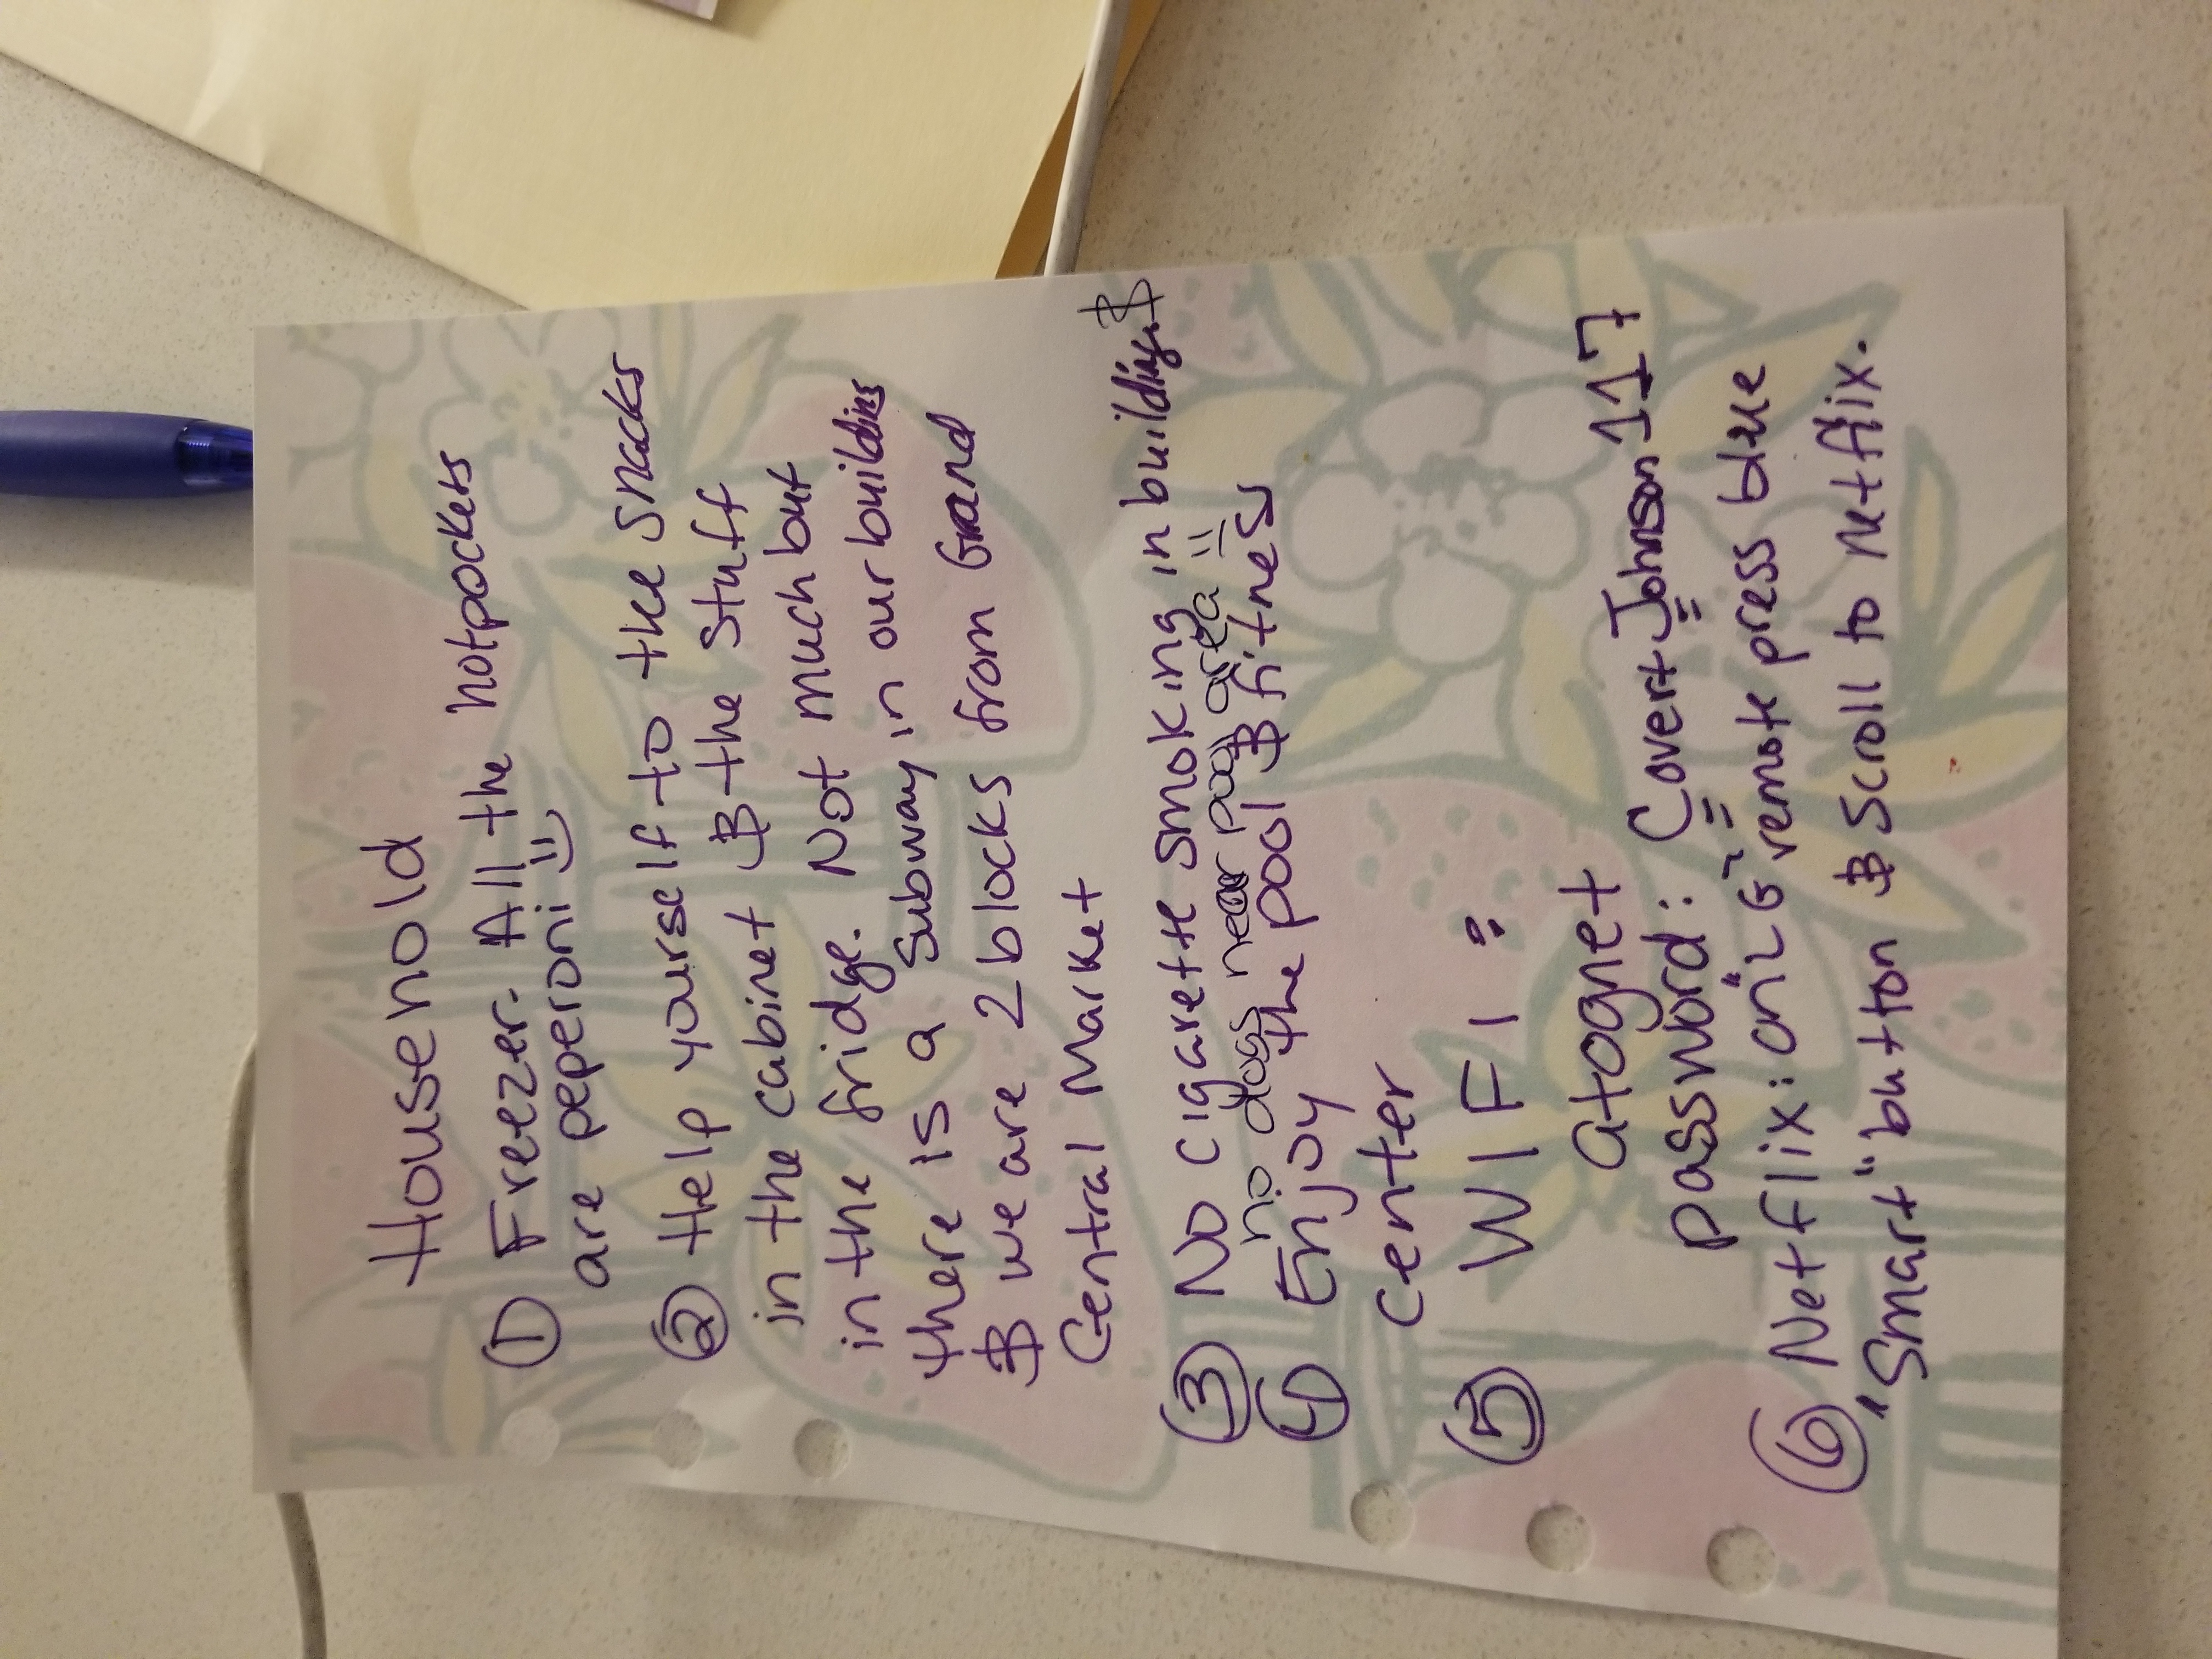 Household
① Freezer. All the hotpockets
are peperoni =)
② Help yourself to the snacks
in the cabinet & the stuff
in the fridge. Not much but
there is a Subway in our building
& we are 2 blocks from Grand
Central Market
③ No cigarette smoking in building &
no dogs near pool area =
④ Enjoy the pool & fitness
center
⑤ WIFI:
atognet
password: CovertJohnson117
⑥ Netflix: on "LG" remote press blue
"Smart" button & scroll to Netflix.